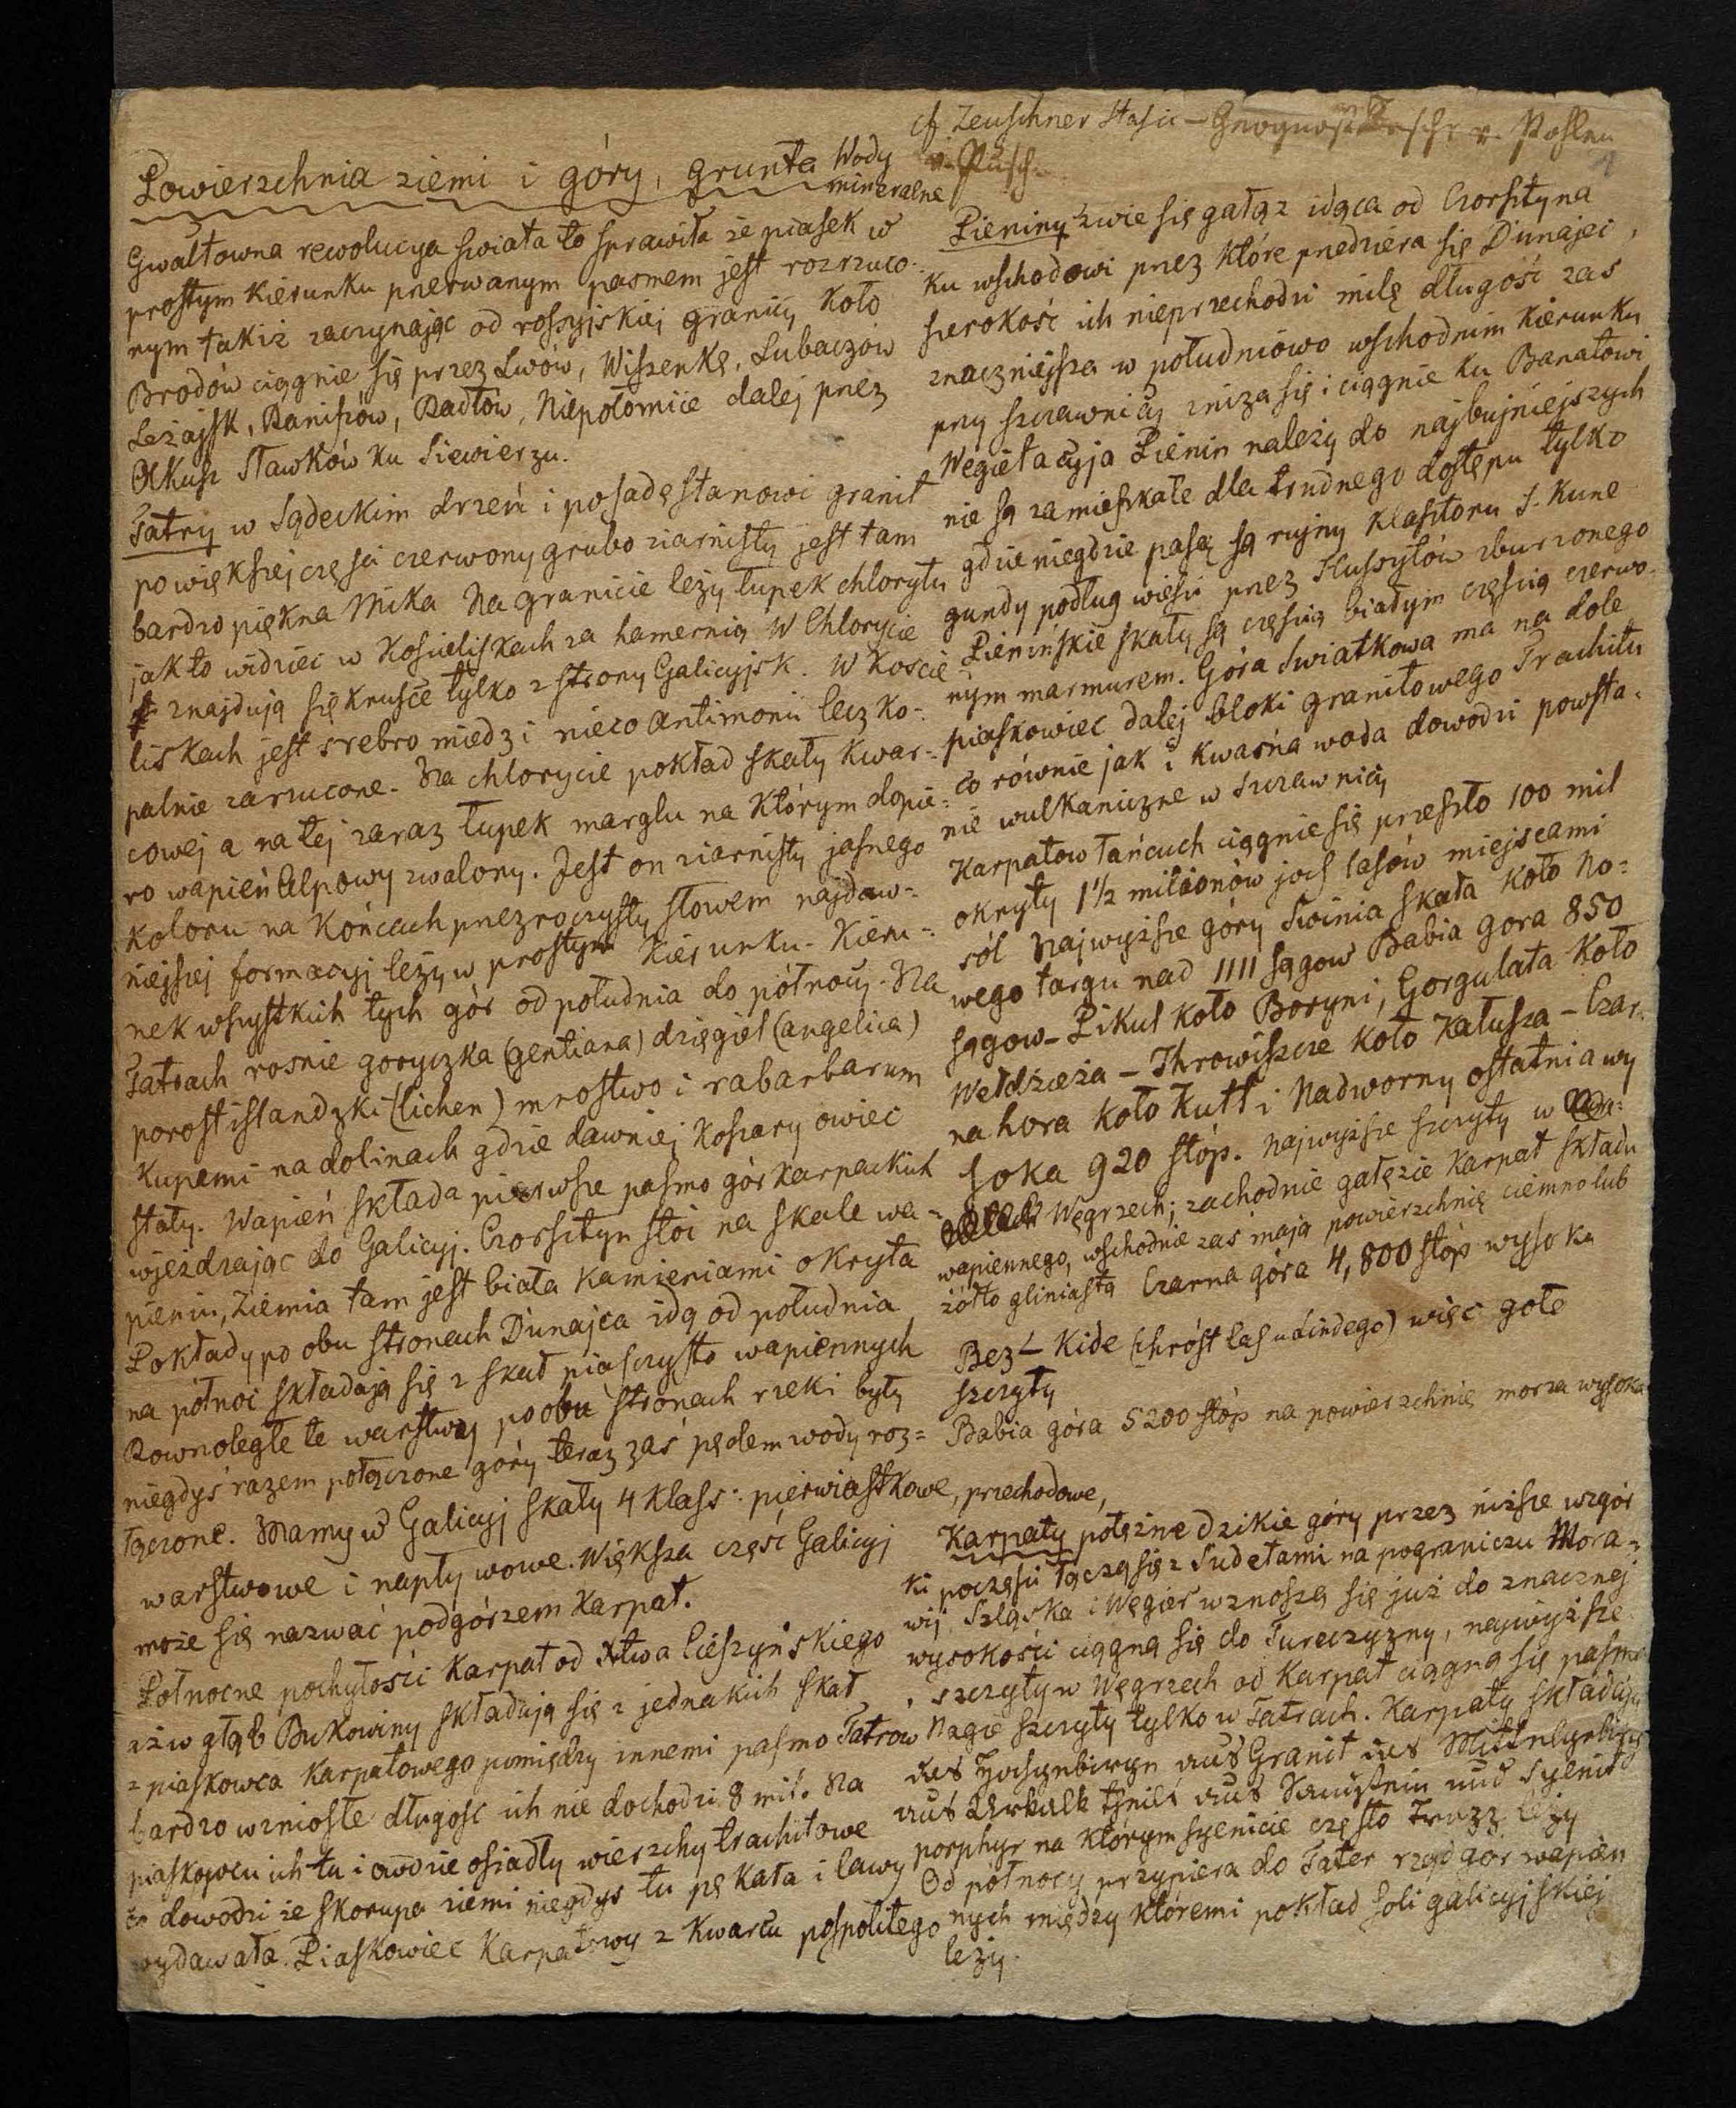 cf Zeuschner Stasic — Geognost Beschr v. Pohlen
v. Pusch.
Powierzchnia ziemi i góry, grunta Wody
mineralne
Gwałtowna rewolucya swiata to sprawiła że piasek w
prostym kierunku przerwanym pasmem jest rozrzuco-
nym takiż zaczynając od rossyjskiej granicy koło
Brodów ciągnie się przez Lwów, Wiszenkę, Lubaczów
Leżajsk, Raniszów, Radłów, Niepołomice dalej przez
Olkusz Sławków ku Siewierzu.
Tatry w Sądeckim drzeń i posadę stanowi granit
po większej części czerwony grubo ziarnisty jest tam
bardzo piękna Mika Na granicie leży łupek chlorytu
jak to widziec w Kościeliskach za hamernią W Chlorycie
znajdują się krusce tylko z strony Galicyjsk. W Koscie-
liskach jest srebro miedz i nieco antimonii lecz ko-
palnie zarzucone. Na chlorycie pokład skały kwar-
cowej a na tej zaraz łupek marglu na którym dopie-
ro wapień Alpowy zwalony. Jest on ziarnisty jasnego
koloru na końcach przezroczysty słowem najdaw-
niejszej formacyj leży w prostym kierunku. Kieru-
nek wszystkich tych gór od południa do północy. Na
Tatrach rosnie goryczka (gentiana) dzięgiel (angelica)
porost islandzki (lichen) mrostwo i rabarbarum
kupami na dolinach gdzie dawniej koszary owiec
stały. Wapień składa pierwsze pasmo gór karpackich
wjeżdzając do Galicyj. Czorsztyn stoi na skale wa-
pieniu, Ziemia tam jest biała kamieniami okryta
Pokłady po obu stronach Dunajca idą od południa
na północ składają się z skał piasczysto wapiennych
Rownoległe te warstwy po obu stronach rzeki były
niegdyś razem połączone góry teraz zaś pędem wody roz=
łączone. Mamy w Galicyj skały 4 klass: pierwiastkowe, przechodowe,
warstwowe i napływowe. Większa część Galicyj
może się nazwać podgórzem Karpat.
Północne pochyłości Karpat od Xtwa Cieszyńskiego
aż w głąb Bukowiny składają się z jednakich skał
z piaskowca Karpatowego pomiędzy innemi pasmo Tatrow
bardzo wzniosłe długość ich nie dochodzi 8 mil. Na
piaskowcu ich tu i owdzie osiadły wierzchy trachitowe
co dowodzi że skorupa ziemi niegdys tu pękała i lawy
wydawała. Piaskowiec Karpatowy z Kwarcu pospolitego
Pieniny zwie się gałąz idąca od Czorsztyna
ku wschodowi przez które przedziera się Dunajec,
szerokość ich nieprzechodzi milę długość zas
znaczniejsza w południowo wschodnim kierunku
przy szczawnicy zniza się i ciągnie ku Banatowi
Wegietacyja Pienin należy do najbujniejszych
nie są zamieszkałe dla trudnego dostępu tylko
gdzie niegdzie pasą są rujny klasztoru S. Kune
gundy podług wiesci przez Hussytów zburzonego
Pienińskie skały są częscią białym częscią czerwo-
nym marmurem. Góra Swiątkowa ma na dole
piaskowiec dalej bloki granitowego Trachitu
co równie jak i kwaśna woda dowodzi powsta-
nie wulkaniczne w Szczawnicy
Karpatow łańcuch ciągnie się przeszło 100 mil
okryty 1½ milionów joch lasów miejscami
ról Najwyższe góry Swinia skała koło No=
wego targu nad 1111 sągow Babia gora 850
sągow – Pikul koło Boryni, Gorgulata koło
Wełdzieża – Throwiszcze koło Kałusza – Czar-
na hora koło Kutt i Nadworny ostatnia wy
soka 920 stóp. najwyższe szczyty w
Węgrzech; zachodnie gałęzie Karpat składu
wapiennego, wschodnie zaś mają powierzchnię ciemno lub
żółto gliniastą Czarna góra 4,800 stóp wysoka
Bez – Kide (chróst las u Lindego) więc gołe
szczyty
Babia góra 5200 stóp na powierzchnię morza wysoka
Karpaty potężne dzikie góry przez niższe wzgór
ki poczęsci łączą się z Sudetami na pograniczu Mora-
wij Szląska i Węgier wznoszą się już do znacznej
wysokości ciągną się do Tureczyzny, najwyższe
szczyty w Węgrzech od Karpat ciągną się pasma
Nagie szczyty tylko w Tatrach. Karpaty składają
aus Hochgebirgen aus Granit aus Mittelgebirg
aus Urkalk theils aus Sandstein und Syenit
porphyr na którym syenicie często Trapp leży
Od północy przypiera do Tater rząd gór wapien
nych między któremi pokład soli galicyjskiej
leży.